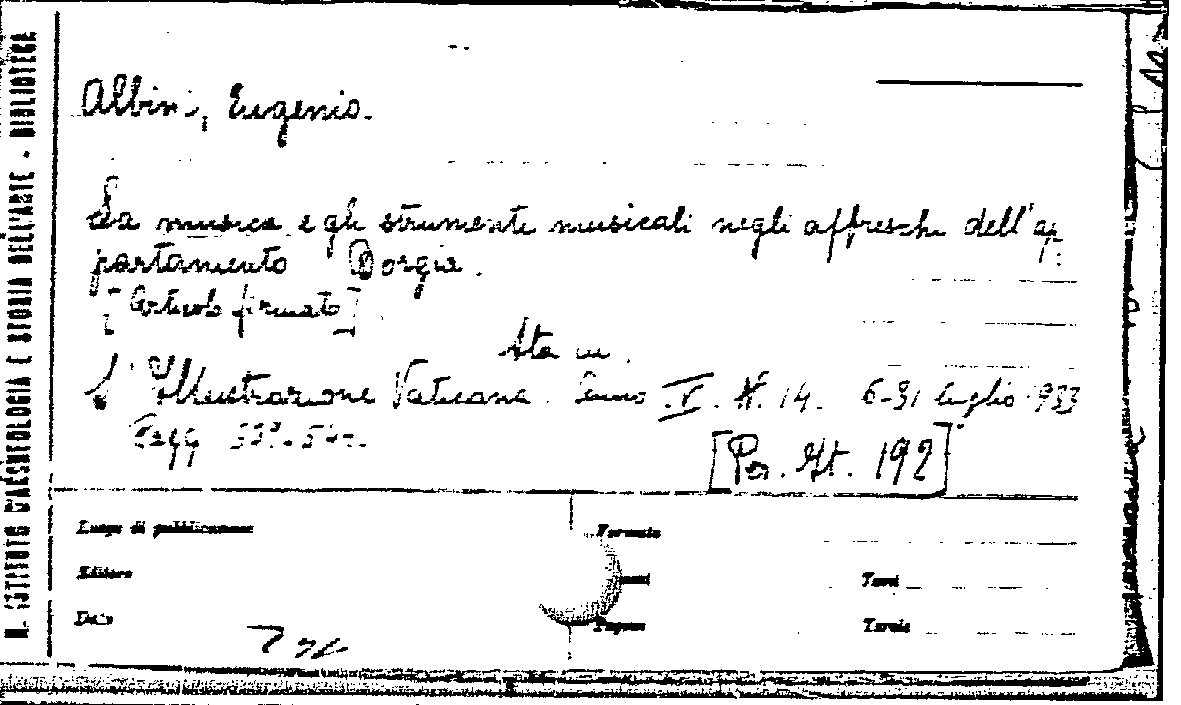 R. ISTITUTO D'ARCHEOLOGIA E STORIA DELL'ARTE - BIBLIOTECA
Albini, Eugenio.
La musica e gli strumenti musicali negli affreschi dell'ap-
partamento Borgia.
[Articolo firmato]
Sta in.
L'Illustrazione Vaticana. Anno IV. N. 14. 16-31 luglio 1933
Pagg
[Per. It. 192]
Luogo di pubblicazione
Formato
Editore
Tomi
Data
Pagine
Tavole